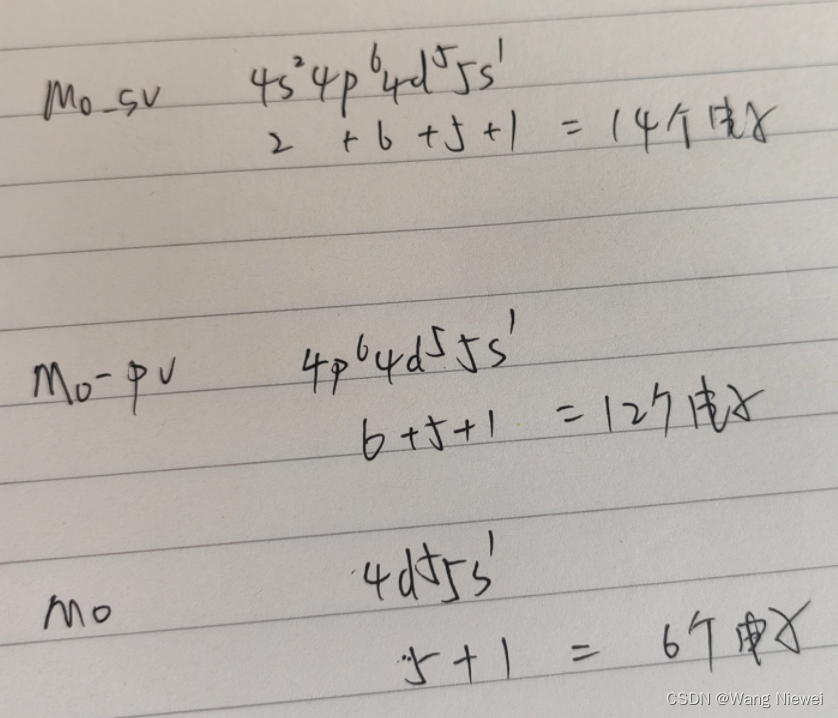 Mo_sv 4s²4p⁶4d⁵5s¹
2 + 6 + 5 + 1 = 14个电子
Mo-pv 4p⁶4d⁵5s¹
6 + 5 + 1 = 12个电子
Mo 4d⁵5s¹
5 + 1 = 6个电子
CSDN @Wang Niewei